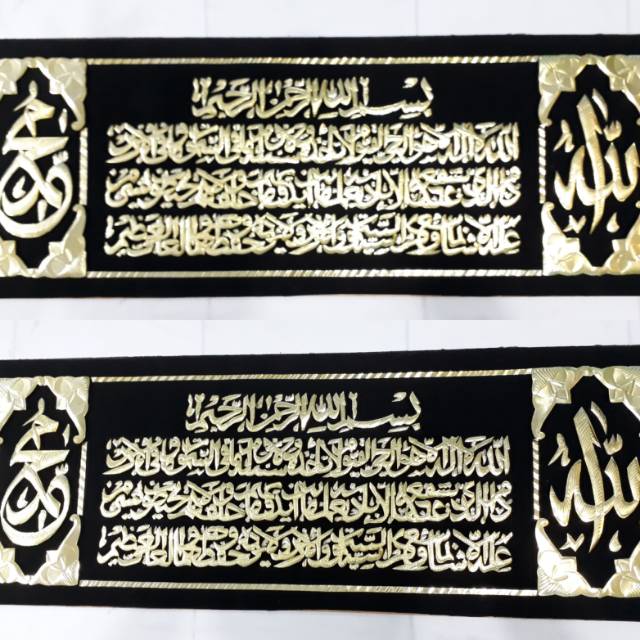 الله
بسم الله الرحمن الرحيم
الله لا اله الا هو الحي القيوم لا تأخذه سنة ولا نوم له ما في السموات وما في الارض
من ذا الذي يشفع عنده الا باذنه يعلم ما بين ايديهم وما خلفهم ولا يحيطون بشيء
من علمه الا بما شاء وسع كرسيه السموات والارض ولا يؤده حفظهما وهو العلي العظيم
محمد
الله
بسم الله الرحمن الرحيم
الله لا اله الا هو الحي القيوم لا تأخذه سنة ولا نوم له ما في السموات وما في الارض
من ذا الذي يشفع عنده الا باذنه يعلم ما بين ايديهم وما خلفهم ولا يحيطون بشيء
من علمه الا بما شاء وسع كرسيه السموات والارض ولا يؤده حفظهما وهو العلي العظيم
محمد